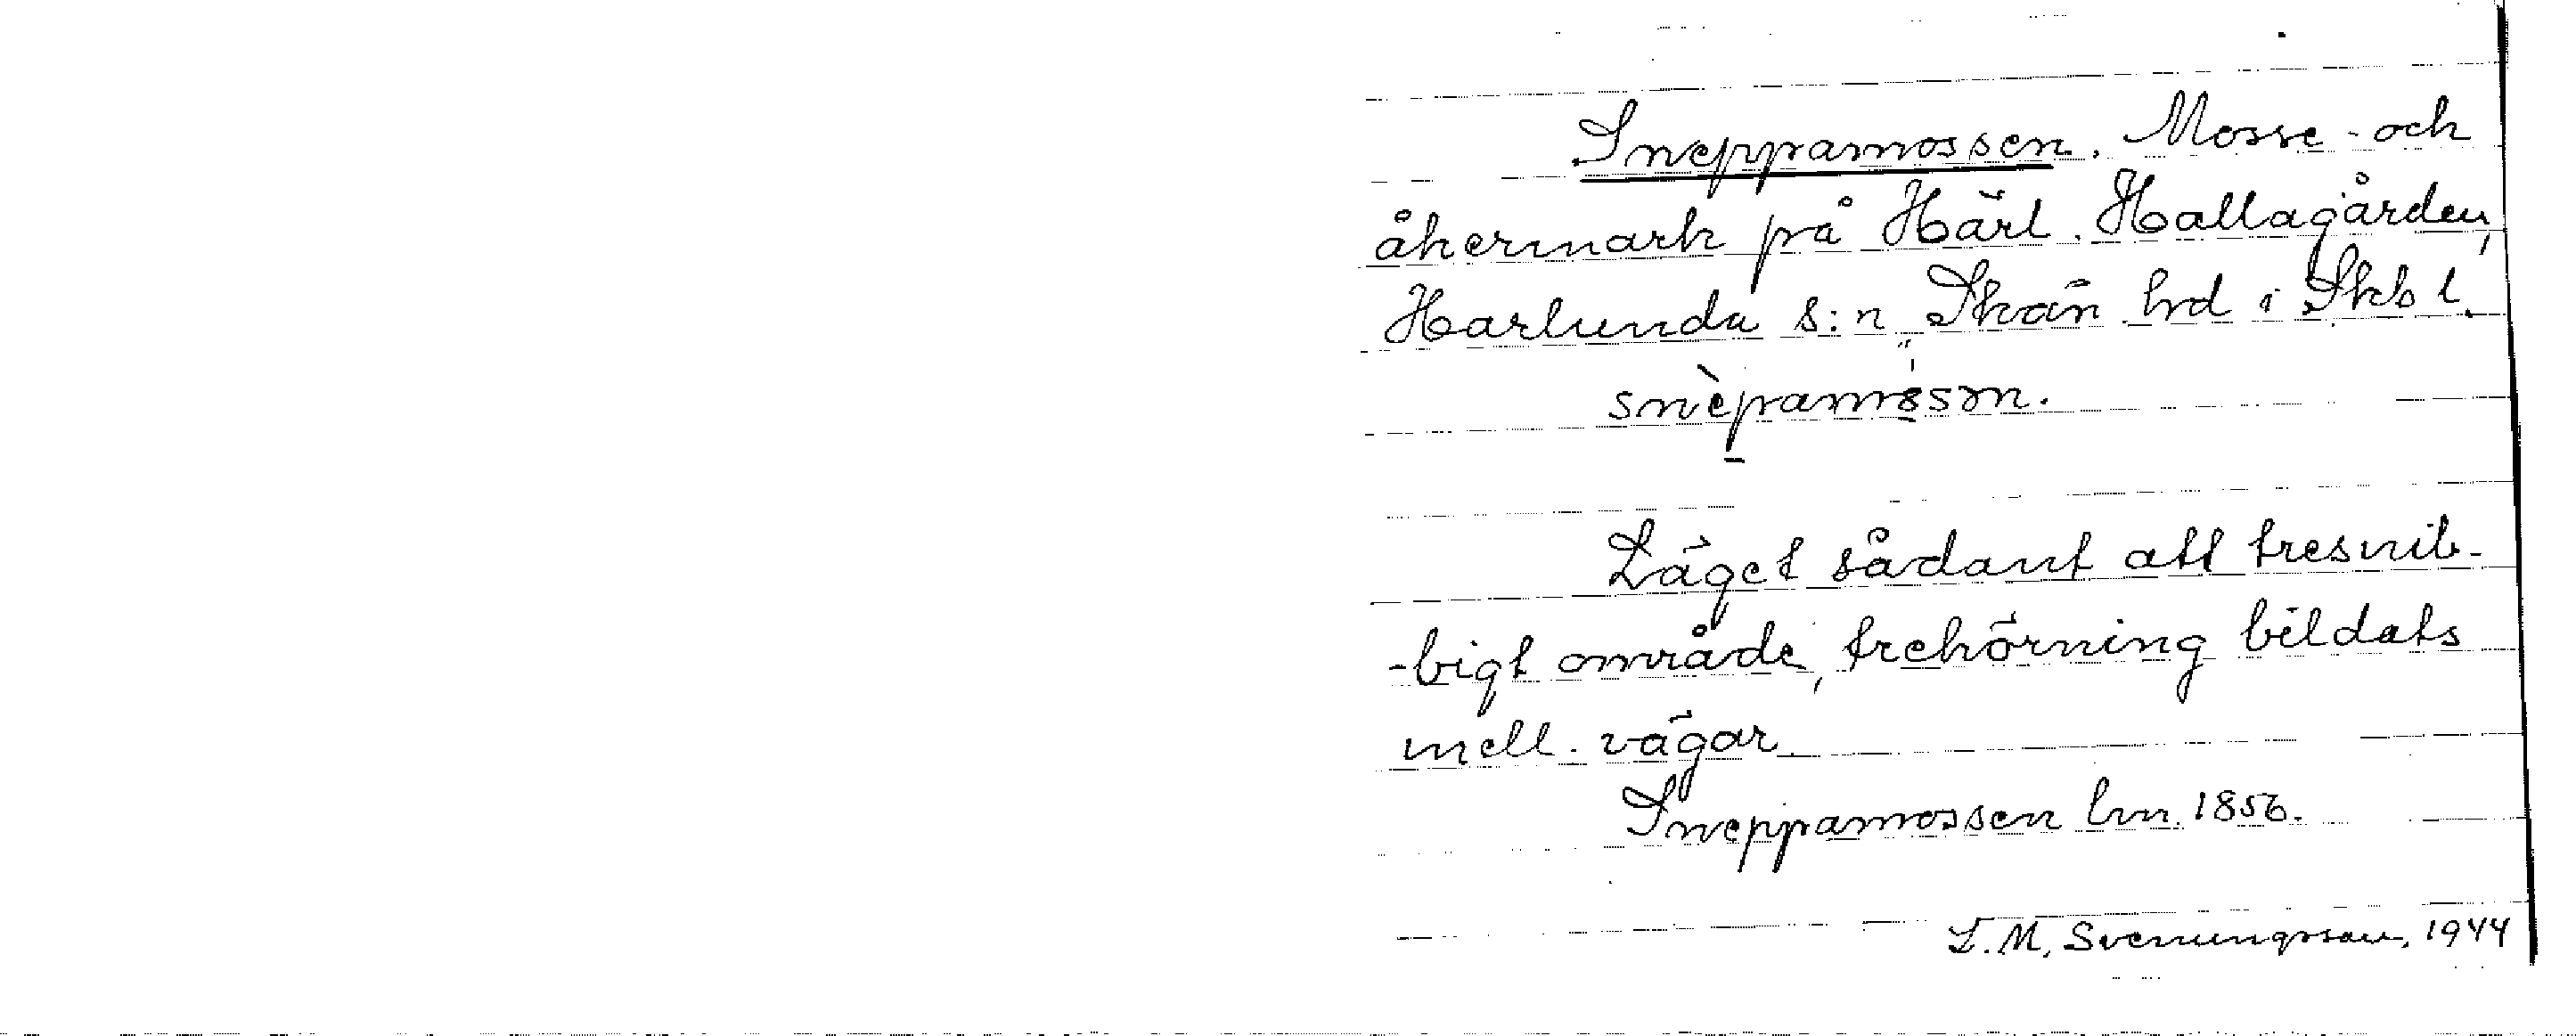 Sneppamossen. Mosse- och
åkermark på Härl. Hallagården,
Härlunda s:n, Skån hd i Skb l.
snèpamåsən.
Läget sådant att tresnib-
-bigt område, trehörning bildats
mell. vägar.
Sneppamossen lm. 1856.
L. M. Svenungsson, 1944